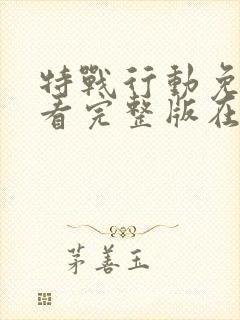 特戰行動免
看完整版在
茅善玉